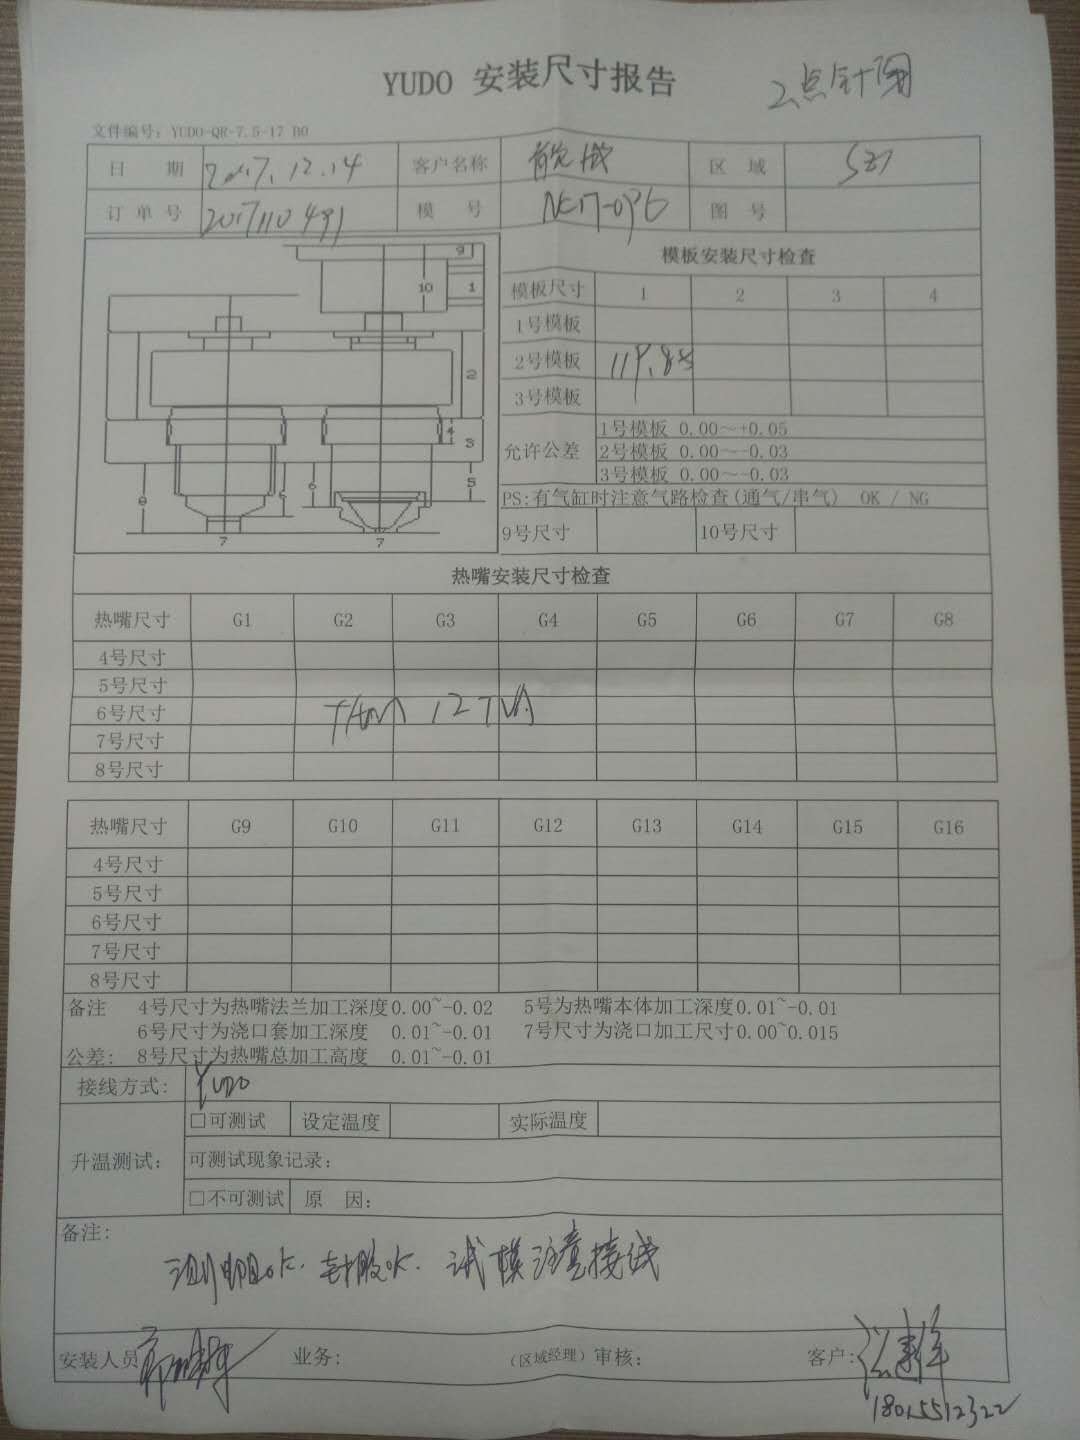 YUDO 安装尺寸报告
2点针阀
文件编号：YUDO-QR-7.5-17 B0
日 期 2017.12.14 客户名称 区 域 SZ1
订单号 2017110491 模 号 NC17-096 图 号
模板安装尺寸检查
模板尺寸 1 2 3 4
1号模板
2号模板 119.85
3号模板
允许公差 1号模板 0.00～+0.05
2号模板 0.00～-0.03
3号模板 0.00～-0.03
PS:有气缸时注意气路检查(通气/串气) OK / NG
9号尺寸 10号尺寸
9
10 1
2
4 3
5
8 6 6
7 7
热嘴安装尺寸检查
热嘴尺寸 G1 G2 G3 G4 G5 G6 G7 G8
4号尺寸
5号尺寸
6号尺寸 12 TVA
7号尺寸
8号尺寸
热嘴尺寸 G9 G10 G11 G12 G13 G14 G15 G16
4号尺寸
5号尺寸
6号尺寸
7号尺寸
8号尺寸
备注 4号尺寸为热嘴法兰加工深度0.00~-0.02 5号为热嘴本体加工深度0.01~-0.01
6号尺寸为浇口套加工深度 0.01~-0.01 7号尺寸为浇口加工尺寸0.00~0.015
公差: 8号尺寸为热嘴总加工高度 0.01~-0.01
接线方式: YUDO
升温测试： □可测试 设定温度 实际温度
可测试现象记录：
□不可测试 原 因：
备注:
测电阻ok. 封胶ok. 试模注意接线
安装人员 业务: （区域经理）审核: 客户:
18015512322